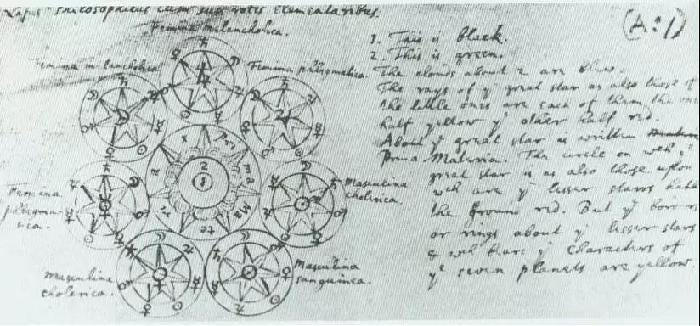 Lapis Philosophicus cum suis rotis Elementaribus.
(A:1)
Femina melancholica.
Femina melancholica
Femina phlegmatica.
Femina
phlegma
tica.
Masculina
cholerica.
Masculina
cholerica.
Masculina
sanguinea.
1
2
Prima Materia
1. This is black.
2. This is green.
The clouds about 2 are blue.
The rays of yᵉ great star as also those of
the little ones are each of them the one
half yellow yᵉ other half red.
About yᵉ great star is written
Prima Materia. The circle on wch yᵉ
great star is as also those upon
wch are yᵉ lesser starrs hath
the ground red. But yᵉ borders
or rings about yᵉ lesser stars
& wch have yᵉ characters of
yᵉ seven planets are yellow